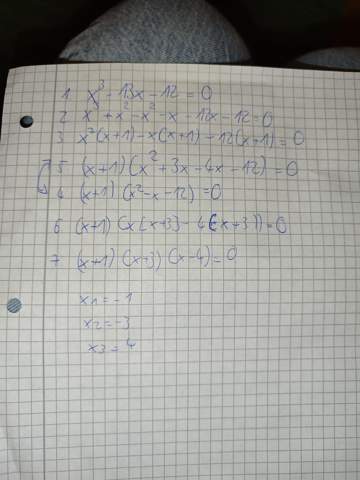 1 x³ - 13x - 12 = 0
2 x³ + x² - x² - x - 12x - 12 = 0
3 x²(x+1) - x(x+1) - 12(x+1) = 0
5 (x+1)(x² + 3x - 4x - 12) = 0
4 (x+1)(x² - x - 12) = 0
6 (x+1)(x(x+3) - 4(x+3)) = 0
7 (x+1)(x+3)(x-4) = 0
x1 = -1
x2 = -3
x3 = 4